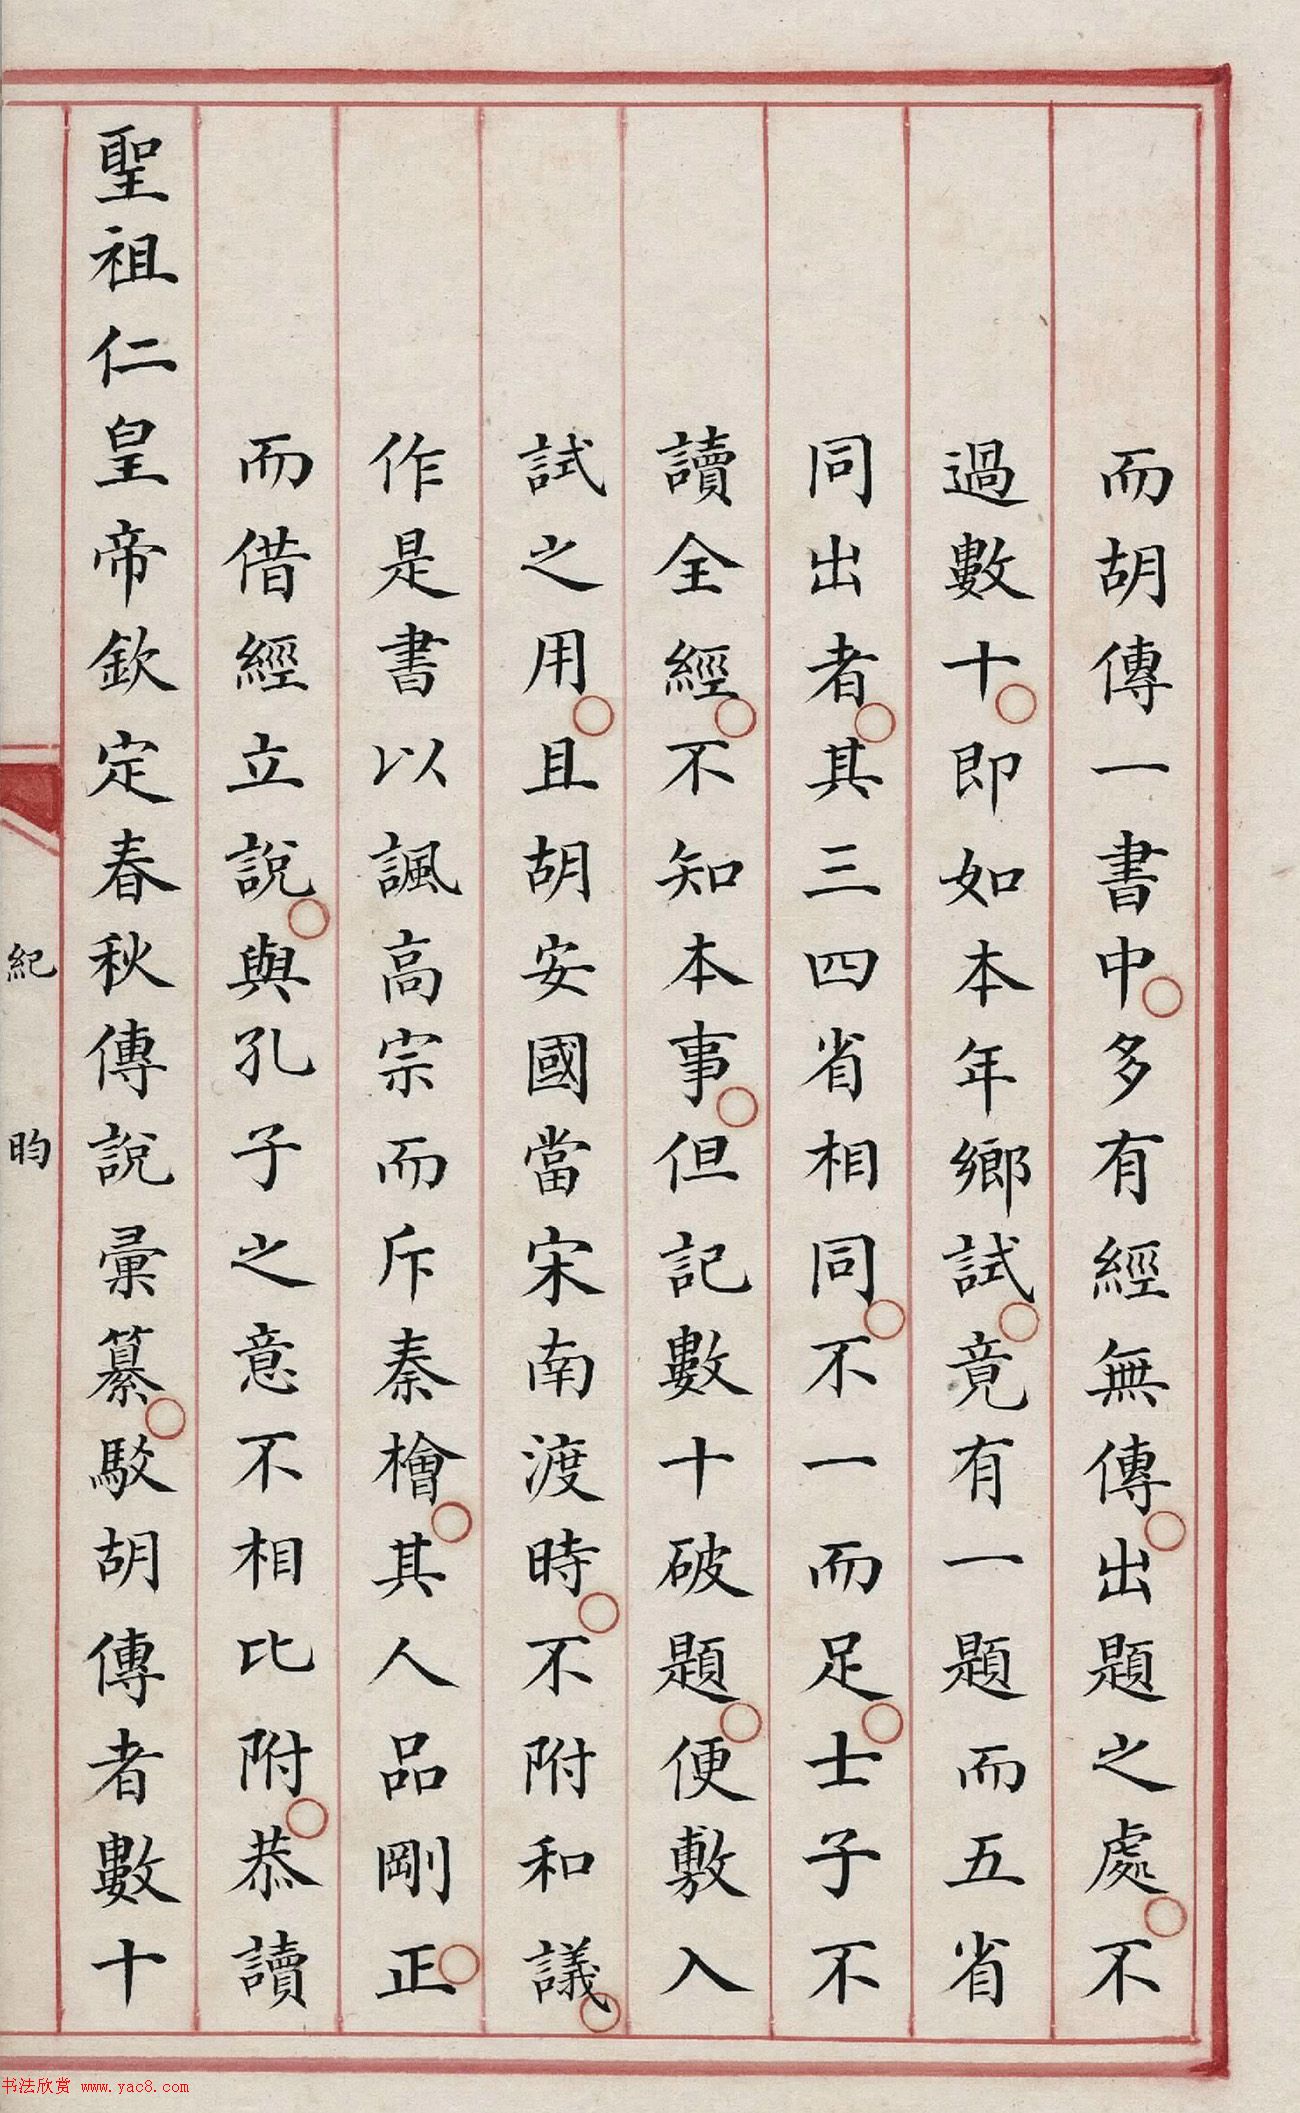 而胡傳一書中多有經無傳出題之處不
過數十即如本年鄉試竟有一題而五省
同出者其三四省相同不一而足士子不
讀全經不知本事但記數十破題便敷入
試之用且胡安國當宋南渡時不附和議
作是書以諷高宗而斥秦檜其人品剛正
而借經立說與孔子之意不相比附恭讀
聖祖仁皇帝欽定春秋傳說彙纂駁胡傳者數十
紀昀
书法欣赏 www.yac8.com